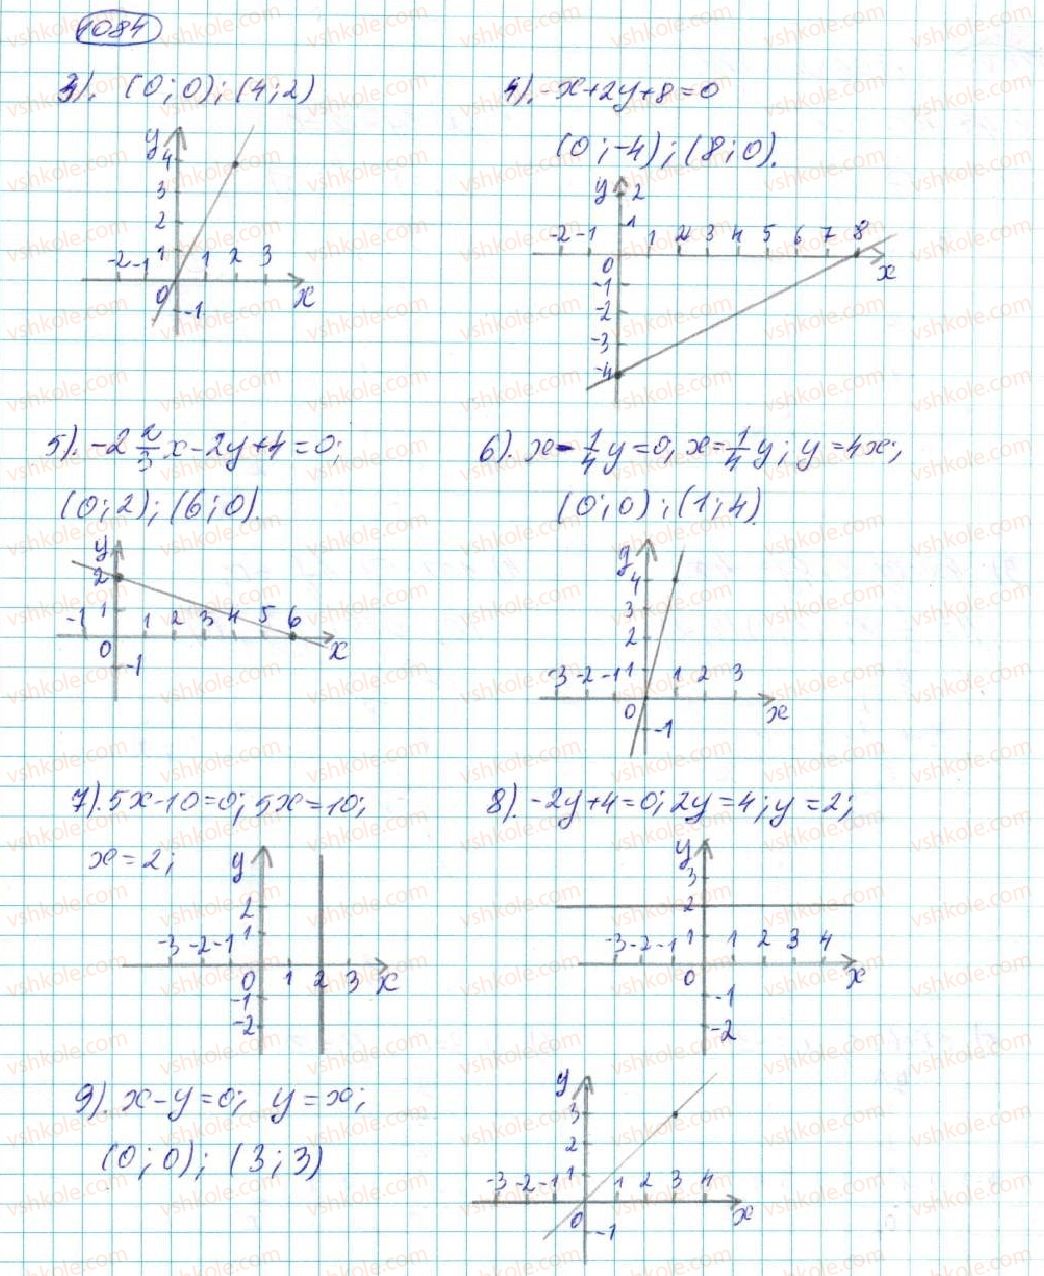 1084
3). (0; 0); (4; 2)
y
4
3
2
1
-2 -1 1 2 3
0
-1
x
4). -x+2y+8=0
(0; -4); (8; 0).
y
2
1
-2 -1 1 2 3 4 5 6 7 8
0
x
-1
-2
-3
-4
5). -2 2/3 x - 2y + 4 = 0;
(0; 2); (6; 0).
y
2
1
-1 1 2 3 4 5 6
0
x
-1
6). x - 1/4 y = 0; x = 1/4 y; y = 4x;
(0; 0); (1; 4)
y
4
3
2
1
-3 -2 -1 1 2 3
0
x
-1
7). 5x-10=0; 5x=10;
x=2;
y
2
1
-3 -2 -1
0 1 2 3 x
-1
-2
8). -2y+4=0; 2y=4; y=2;
y
3
2
1
-3 -2 -1 1 2 3 4
0
x
-1
-2
9). x-y=0; y=x;
(0; 0); (3; 3)
y
3
2
1
-3 -2 -1 1 2 3 4
0
x
-1
vshkole.com